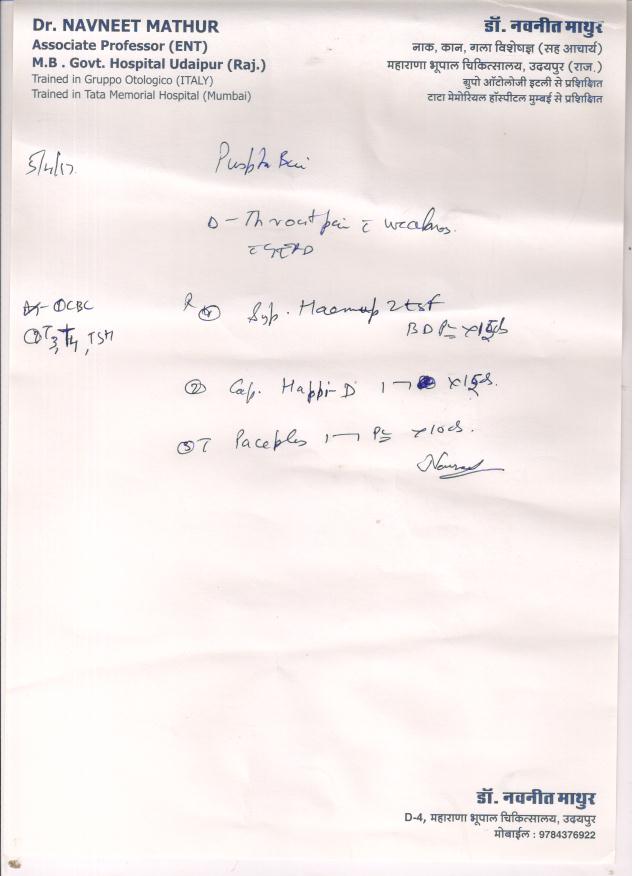 Dr. NAVNEET MATHUR
Associate Professor (ENT)
M.B . Govt. Hospital Udaipur (Raj.)
Trained in Gruppo Otologico (ITALY)
Trained in Tata Memorial Hospital (Mumbai)
डॉ. नवनीत माथुर
नाक, कान, गला विशेषज्ञ (सह आचार्य)
महाराणा भूपाल चिकित्सालय, उदयपुर (राज.)
ग्रुपो ऑटोलोजी इटली से प्रशिक्षित
टाटा मेमोरियल हॉस्पीटल मुम्बई से प्रशिक्षित
5/4/17
Puspha Bai
Throat pain c weakness.
c GERD
① CBC
② T3, T4, TSH
R ① Syp. Haemup 2tsf
BD x 15ds
② Cap. Happi-D 1 x 15ds.
③ T 1 x 10ds.
डॉ. नवनीत माथुर
D-4, महाराणा भूपाल चिकित्सालय, उदयपुर
मोबाईल : 9784376922